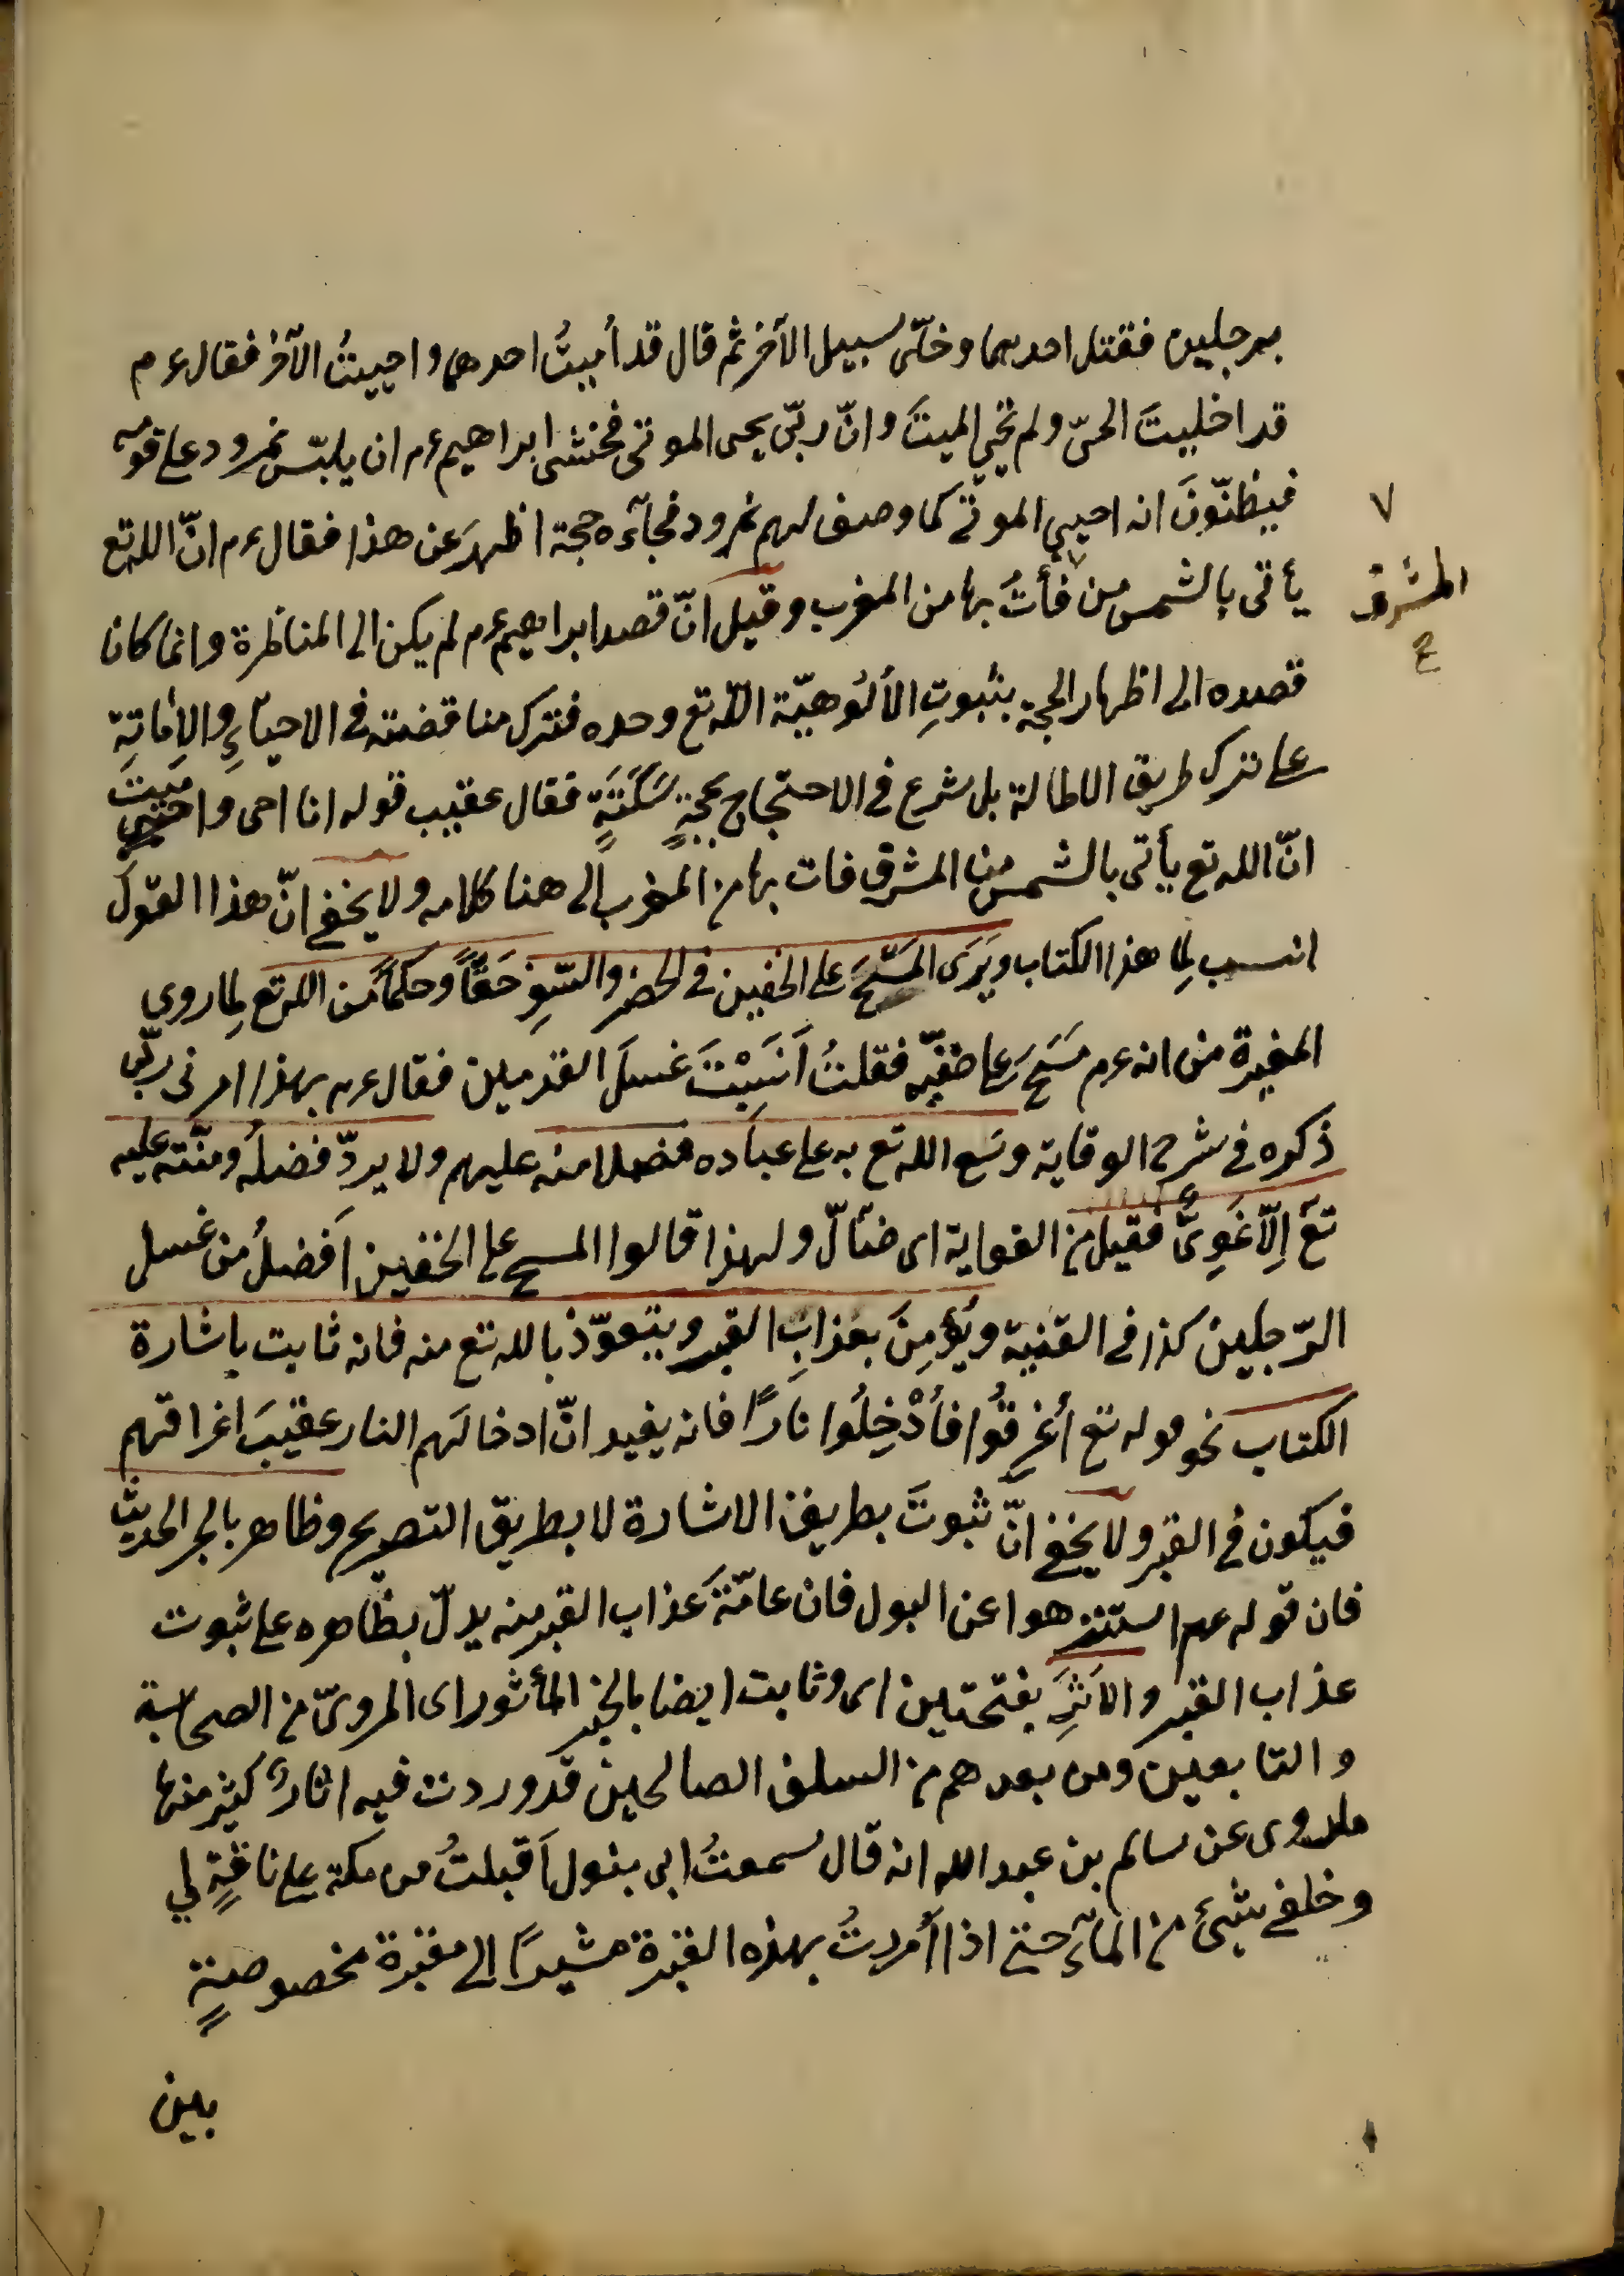 برجلين فقتل احدهما وخلّى سبيل الآخر ثم قال قد أميتُ احدهما واحييتُ الآخر فقال ءم
قد اخليتَ الحىّ ولم تحيِ الميتَ وانّ ربّى يحيى الموتى فخشى ابراهيم ءم ان يلبّس نمرود على قومه
فيظنّونَ انه احيى الموتى كما وصف لهم نمرود فجآءه حجة اظهرَ عن هذا فقال ءم انّ الله تع
يأتى بالشمس من فأتُ بها من المغرب وقيل انّ قصد ابراهيم ءم لم يكن الى المناظرة وانما كانا
المشرق
صح
قصده الى اظهار الحجة بثبوتِ الألُوهيّة الله تع وحده فترك مناقضته فى الاحياءِ والاماتةِ
على ترك طريق الاطالة بل شرع فى الاحتجاج بحجةٍ سَكَتَةٍ فقال عقيب قوله انا احى واميتَ
انّ الله تع يأتى بالشمس من المشرق فات بها من المغرب الى هنا كلامه ولا يخفى انّ هذا القولَ
انسب لِما هذا الكتاب ويَرَى المَسْحَ على الخفين فى الحضر والسّفرِ حَقّاً وحكماً من الله تع لِما روى
المغيرة من انه ءم مَسَحَ على خفّيه فقلتُ اَنَسِيْتَ غسلَ القدمين فقال ءم بهذا امرنى ربّى
ذكره فى شرح الوقاية وسَع الله تع به على عباده فضلا منه عليهم ولا يردّ فضلَه ومنّته عليه
تعَ اِلّا غَوِىٌّ فقيل من الغواية اى ضَآلّ ولهذا قالوا المسح على الخفين اَفضلُ من غسل
الرّجلين كذا فى القنية ويُؤمِنَ بعذابِ القبر ويتعوّذ بالله تع منه فانه ثابت باشارة
الكتاب نحو قوله تع أُغرِقُوا فأُدْخِلُوا نارًا فانه يفيد انّ ادخالَهم النار عقيبَ اغراقهم
فيكون فى القبر ولا يخفى انّ ثبوتَ بطريق الاشارة لا بطريق التصريح وظاهر بالجر الحديثِ
فان قوله عم استنزهوا عن البول فان عامّةَ عذاب القبر منه يدلّ بظاهره على ثبوت
عذاب القبر والاَثرِ بفتحتين اى وثابت ايضا بالخبر المأثور اى المروىّ من الصحابة
والتابعين ومن بعدهم من السلف الصالحين قد وردت فيه اثارٌ كثير منها
ما روى عن سالم بن عبد الله انه قال سمعتُ ابى يقول اَقبلتُ من مكة على ناقةٍ لي
وخلفى شئ من المآءِ حتى اذا اَمررتُ بهذه المقبرة مشيرًا الى مقبرة مخصوصةٍ
بين